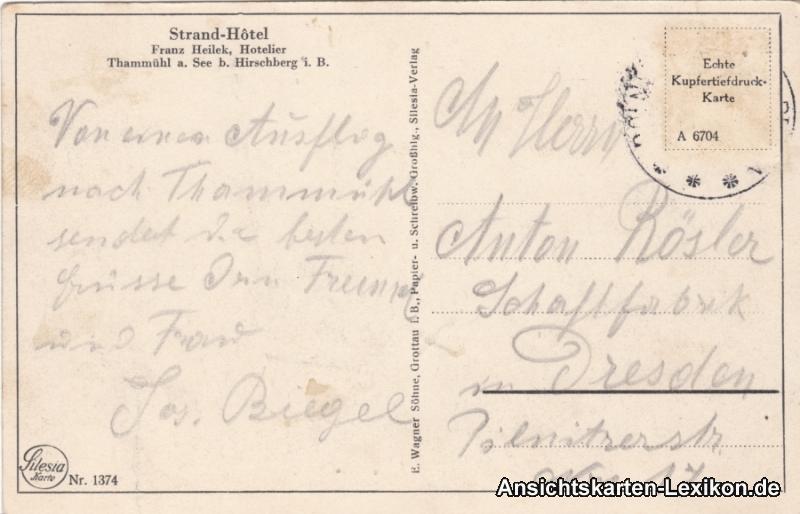 Strand-Hôtel
Franz Heilek, Hotelier
Thammühl a. See b. Hirschberg i. B.
Von einen Ausflug
nach Thammühl
sendet die besten
Grüsse Dein Freund
und Frau
Jos. Biegel
Silesia
Karte
Nr. 1374
E. Wagner Söhne, Grottau i. B., Papier- u. Schreibw. Großhlg., Silesia-Verlag
Echte
Kupfertiefdruck-
Karte
A 6704
An Herrn
Anton Rösler
Schaftfabrik
in Dresden
Pilnitzerstr
Ansichtskarten-Lexikon.de